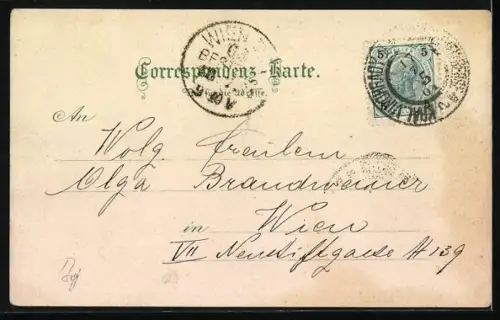 WIEN
Correspondenz-Karte.
KRÁL. VINOHRADY
An
Wolg. Freulein
Olga Brandweiner
in
Wien
VII Neustiftgasse # 139